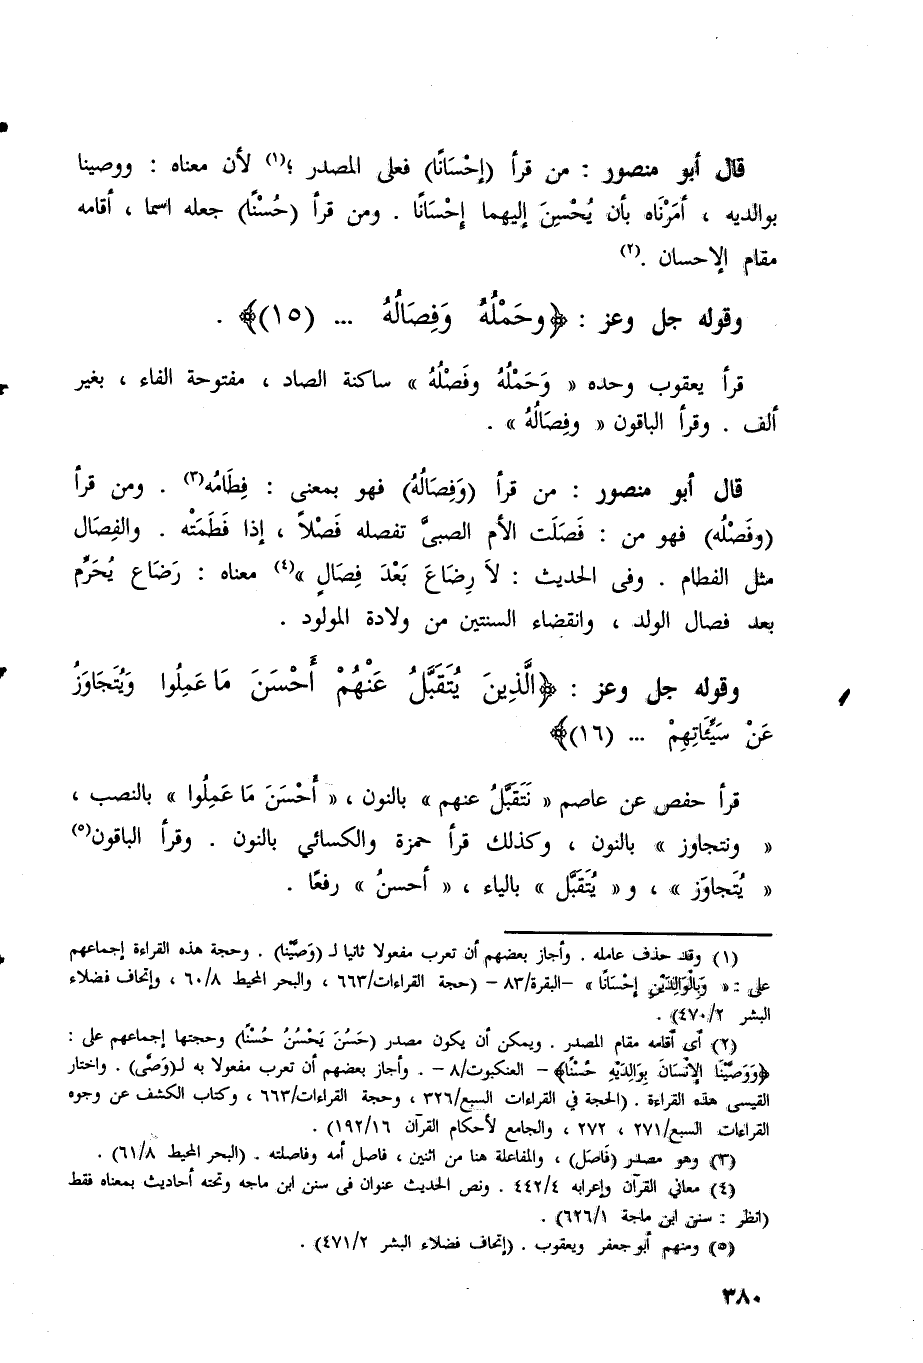 قال أبو منصور : من قرأ (إحْسَانًا) فعلى المصدر ؛(١) لأن معناه : ووصينا
بوالديه ، أمَرْنَاه بأن يُحْسِنَ إليهما إحْسَانًا . ومن قرأ (حُسْنًا) جعله اسما ، أقامه
مقام الإحسان .(٢)
وقوله جل وعز : ﴿وحَمْلُهُ وَفِصَالُهُ ... (١٥)﴾ .
قرأ يعقوب وحده « وَحَمْلُهُ وفَصْلُهُ » ساكنة الصاد ، مفتوحة الفاء ، بغير
ألف . وقرأ الباقون « وفِصَالُهُ » .
قال أبو منصور : من قرأ (وَفِصَالُهُ) فهو بمعنى : فِطَامُه(٣) . ومن قرأ
(وفَصْلُه) فهو من : فَصَلَت الأم الصبىَّ تفصله فَصْلاً ، إذا فَطَمَتْه . والفِصَال
مثل الفطام . وفى الحديث : لاَ رِضَاعَ بَعْدَ فِصَالٍ »(٤) معناه : رَضَاع يُحَرِّم
بعد فصال الولد ، وانقضاء السنتين من ولادة المولود .
وقوله جل وعز : ﴿الَّذِينَ يُتَقَبَّلُ عَنْهُمْ أَحْسَنَ مَا عَمِلُوا وَيُتَجَاوَزُ
عَنْ سَيِّئَاتِهِمْ ... (١٦)﴾
قرأ حفص عن عاصم « نَتَقَبَّلُ عنهم » بالنون ، « أَحْسَنَ مَا عَمِلُوا » بالنصب ،
« ونتجاوز » بالنون ، وكذلك قرأ حمزة والكسائي بالنون . وقرأ الباقون(٥)
« يُتَجاوَز » ، و « يُتَقَبَّل » بالياء ، « أحسنُ » رفعًا .
(١) وقد حذف عامله . وأجاز بعضهم أن تعرب مفعولا ثانيا لـ (وَصَّيْنا) . وحجة هذه القراءة إجماعهم
على : « وَبِالْوَالِدَيْنِ إحْسَانًا » –البقرة/٨٣ – (حجة القراءات/٦٦٣ ، والبحر المحيط ٦٠/٨ ، وإتحاف فضلاء
البشر ٤٧٠/٢) .
(٢) أى أقامه مقام المصدر . ويمكن أن يكون مصدر (حَسُنَ يَحْسُنُ حُسْنًا) وحجتها إجماعهم على :
﴿وَوَصَّيْنَا الإِنْسَانَ بِوَالِدَيْهِ حُسْنًا﴾ – العنكبوت/٨ – . وأجاز بعضهم أن تعرب مفعولا به لـ(وَصَّى) . واختار
القيسى هذه القراءة . (الحجة في القراءات السبع/٣٢٦ ، وحجة القراءات/٦٦٣ ، وكتاب الكشف عن وجوه
القراءات السبع/٢٧١ ، ٢٧٢ ، والجامع لأحكام القرآن ١٩٢/١٦) .
(٣) وهو مصدر (فَاصَل) ، والمفاعلة هنا من اثنين ، فاصل أمه وفاصلته . (البحر المحيط ٦١/٨) .
(٤) معاني القرآن وإعرابه ٤٤٢/٤ . ونص الحديث عنوان فى سنن ابن ماجه وتحته أحاديث بمعناه فقط
(انظر : سنن ابن ماجة ٦٢٦/١) .
(٥) ومنهم أبو جعفر ويعقوب . (إتحاف فضلاء البشر ٤٧١/٢) .
٣٨٠